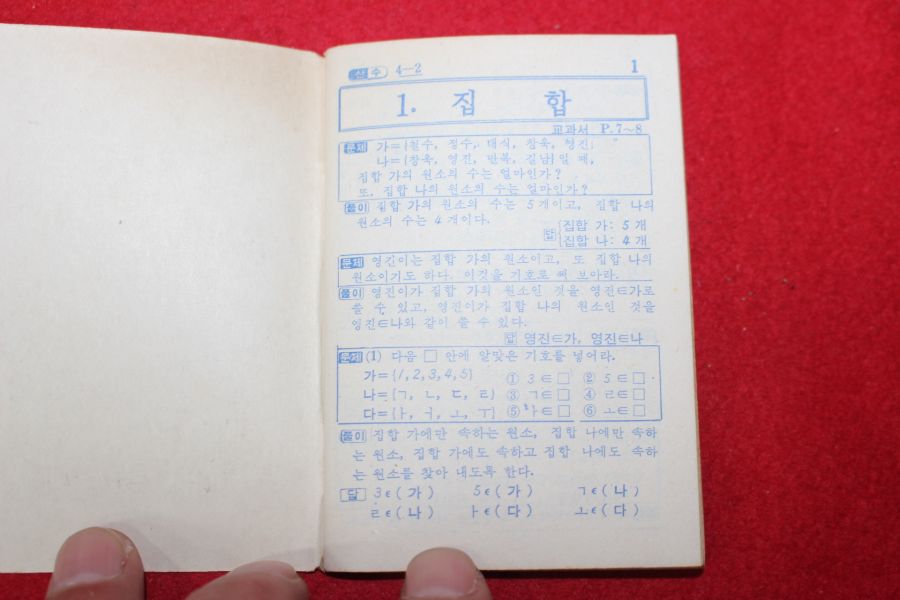 산수 4—2 1
1. 집 합
교과서 P.7~8
문제 가={철수, 정수, 태식, 창욱, 영진}
나={창욱, 영진, 만복, 길남}일 때,
집합 가의 원소의 수는 얼마인가?
또, 집합 나의 원소의 수는 얼마인가?
풀이 집합 가의 원소의 수는 5개이고, 집합 나의
원소의 수는 4개이다.
답 {집합 가: 5개
집합 나: 4개
문제 영진이는 집합 가의 원소이고, 또 집합 나의
원소이기도 하다. 이것을 기호로 써 보아라.
풀이 영진이가 집합 가의 원소인 것을 영진∈가로
쓸 수 있고, 영진이가 집합 나의 원소인 것을
영진∈나와 같이 쓸 수 있다.
답 영진∈가, 영진∈나
문제 (1) 다음 □ 안에 알맞은 기호를 넣어라.
가={1, 2, 3, 4, 5} ① 3∈□ ② 5∈□
나={ㄱ, ㄴ, ㄷ, ㄹ} ③ ㄱ∈□ ④ ㄹ∈□
다={ㅏ, ㅓ, ㅗ, ㅜ} ⑤ ㅏ∈□ ⑥ ㅗ∈□
풀이 집합 가에만 속하는 원소, 집합 나에만 속하
는 원소, 집합 가에도 속하고 집합 나에도 속하
는 원소를 찾아 내도록 한다.
답 3∈(가) 5∈(가) ㄱ∈(나)
ㄹ∈(나) ㅏ∈(다) ㅗ∈(다)